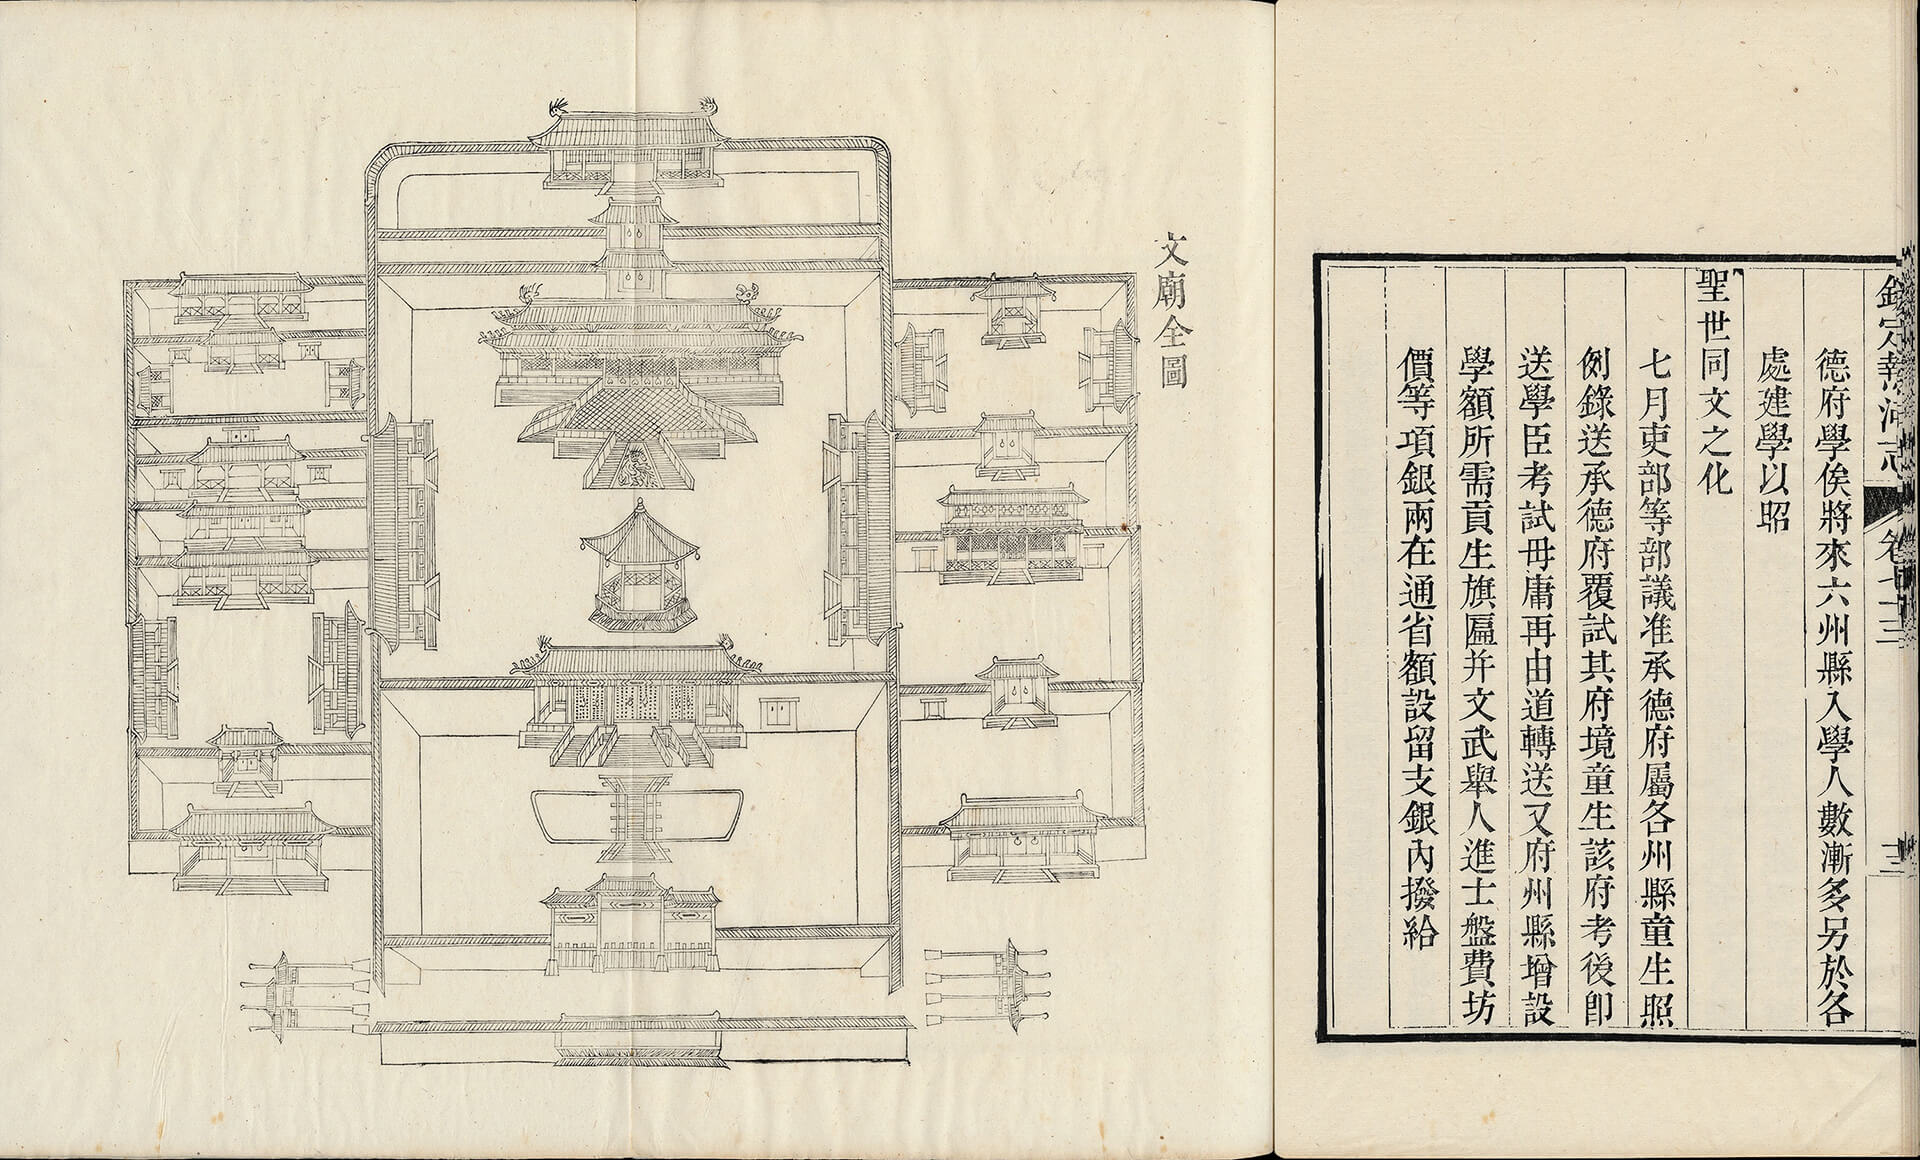 欽定熱河志
卷七十三
德府學俟將來六州縣入學人數漸多另於各
處建學以昭
聖世同文之化
七月吏部等部議准承德府屬各州縣童生照
例錄送承德府覆試其府境童生該府考後卽
送學臣考試毋庸再由道轉送又府州縣增設
學額所需貢生旗匾并文武舉人進士盤費坊
價等項銀兩在通省額設留支銀內撥給
文廟全圖